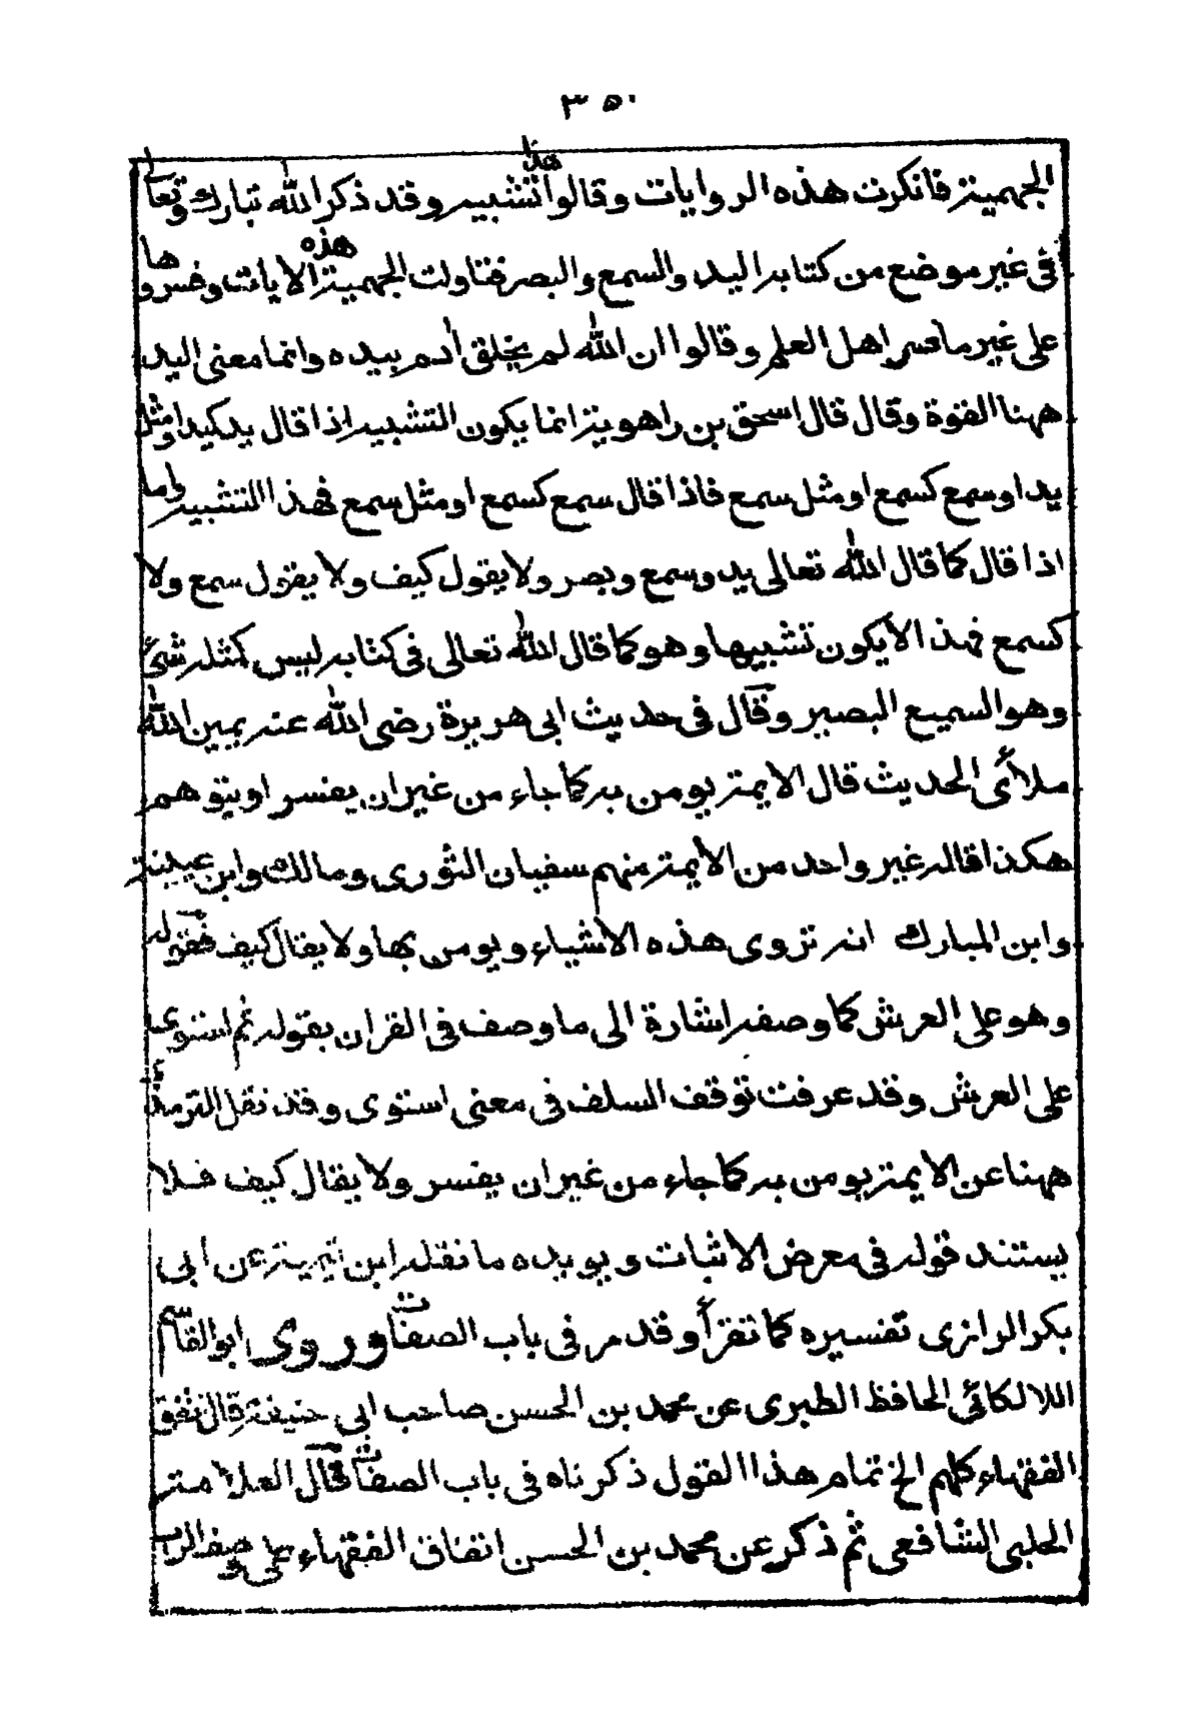 ٣٥٠
الجهمية فانكرت هذه الروايات وقالوا هذا تشبيه وقد ذكر الله تبارك وتعا
فى غير موضع من كتابه اليد والسمع والبصر فتاولت الجهمية هذه الايات وفسروها
على غير ما فسر اهل العلم وقالوا ان الله لم يخلق ادم بيده وانما معنى اليد
ههنا القوة وقال قال اسحق بن راهويه انما يكون التشبيه اذا قال يد كيد او مثل
يد او سمع كسمع او مثل سمع فاذا قال سمع كسمع او مثل سمع فهذا التشبيه واما
اذا قال كما قال الله تعالى يد وسمع وبصر ولا يقول كيف ولا يقول سمع ولا
كسمع فهذا لا يكون تشبيها وهو كما قال الله تعالى فى كتابه ليس كمثله شئ
وهو السميع البصير وقال فى حديث ابى هريرة رضى الله عنه يمين الله
ملأى الحديث قال الايمة يومن به كما جاء من غير ان يفسر او يتوهم
هكذا قاله غير واحد من الايمة منهم سفيان الثورى ومالك وابن عيينة
وابن المبارك انه تروى هذه الاشياء ويومن بها ولا يقال كيف فقوله
وهو على العرش كما وصفه اشارة الى ما وصف فى القران بقوله ثم استوى
على العرش وقد عرفت توقف السلف فى معنى استوى وقد نقل الترمذى
ههنا عن الايمة يومن به كما جاء من غير ان يفسر ولا يقال كيف فلا
يستند قوله فى معرض الاثبات ويويده ما نقله ابن تيمية عن ابى
بكر الرازى تفسيره كما تقرأ وقد مر فى باب الصفات وروى ابو القاسم
اللالكائى الحافظ الطبرى عن محمد بن الحسن صاحب ابى حنيفة قال اتفق
الفقهاء كلهم الخ تمام هذا القول ذكرناه فى باب الصفات قال العلامة
الحلبى الشافعى ثم ذكر عن محمد بن الحسن اتفاق الفقهاء على وصف الرب